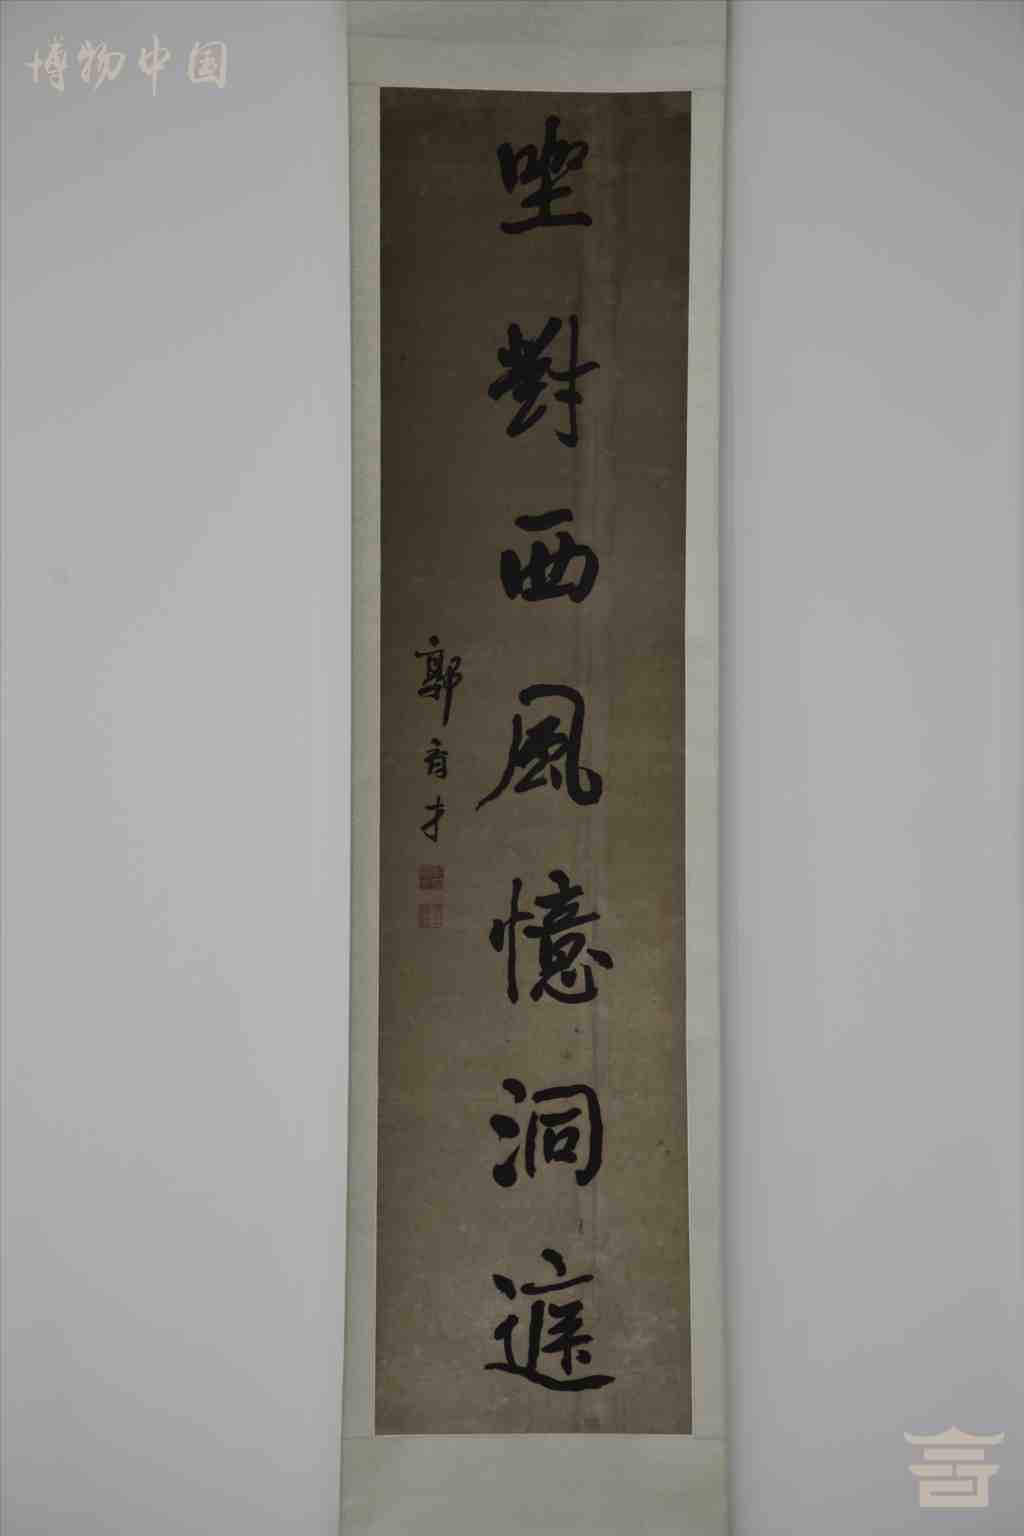 博物中国
坐對西風憶洞遲
郭育才